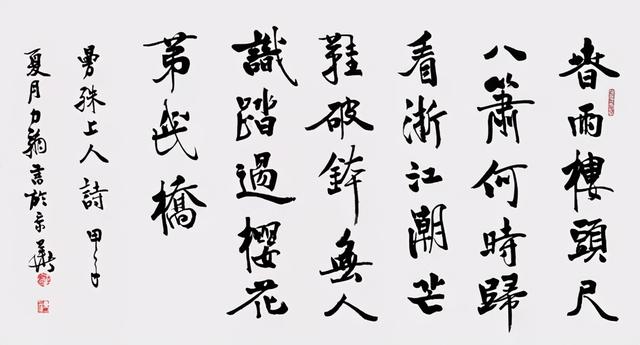 春雨樓頭尺
八簫何時歸
看浙江潮芒
鞋破鉢無人
識踏過櫻花
第幾橋
曼殊上人詩 甲子
夏月力翰書於京華